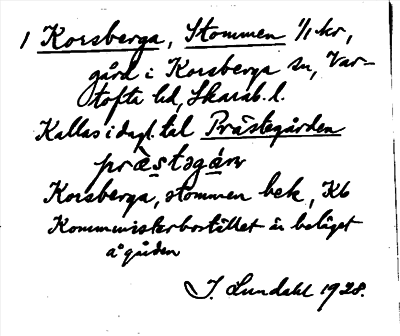 1 Korsberga, Stommen 1/1 kr,
gård i Korsberga sn, Var-
tofta hd, Skarab. l.
Kallas i dagl. tal Prästegården
præstəgá́ṛn
Korsberga, stommen bek, Kb
Kommunisterbostället är beläget
å gården
J. Lundahl 1928.